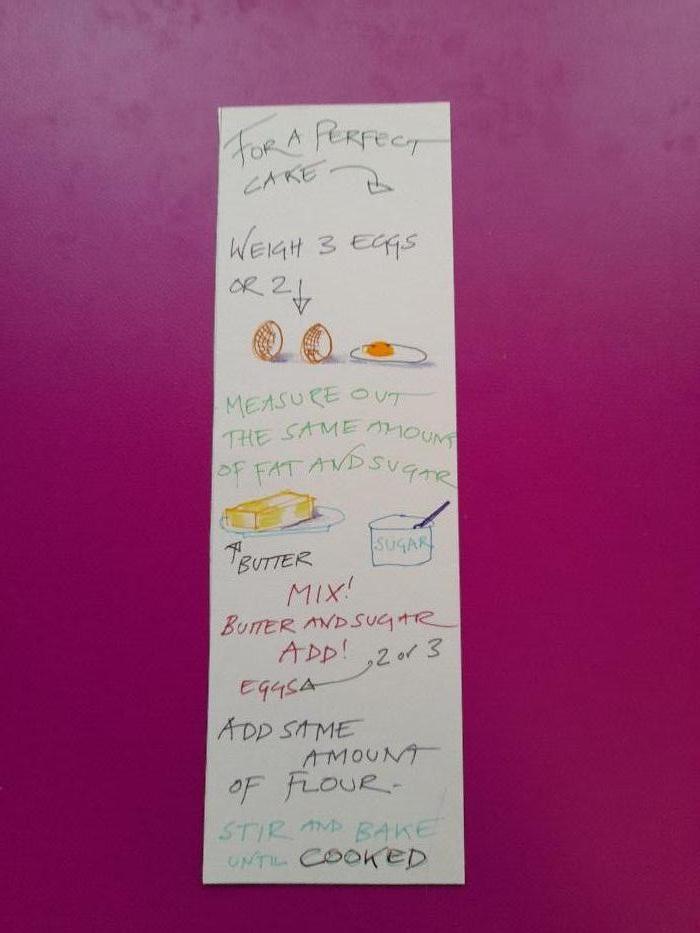 FOR A PERFECT
CAKE
WEIGH 3 EGGS
OR 2
MEASURE OUT
THE SAME AMOUNT
OF FAT AND SUGAR
SUGAR
BUTTER
MIX!
BUTTER AND SUGAR
ADD!
2 or 3
EGGS
ADD SAME
AMOUNT
OF FLOUR-
STIR AND BAKE
UNTIL COOKED